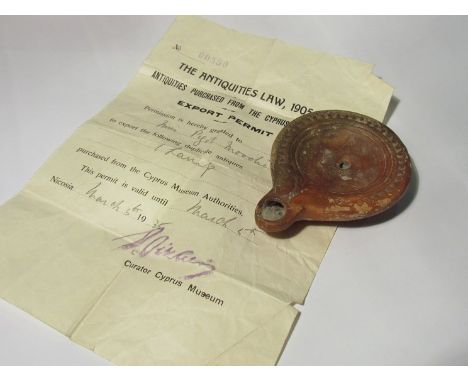 No. 00350
THE ANTIQUITIES LAW, 1905
ANTIQUITIES PURCHASED FROM THE CYPRUS
EXPORT PERMIT
Permission is hereby granted to
to export the following duplicate antiques
1 Lamp
purchased from the Cyprus Museum Authorities,
This permit is valid until March 5th
Nicosia, March 5th 19
Curator Cyprus Museum